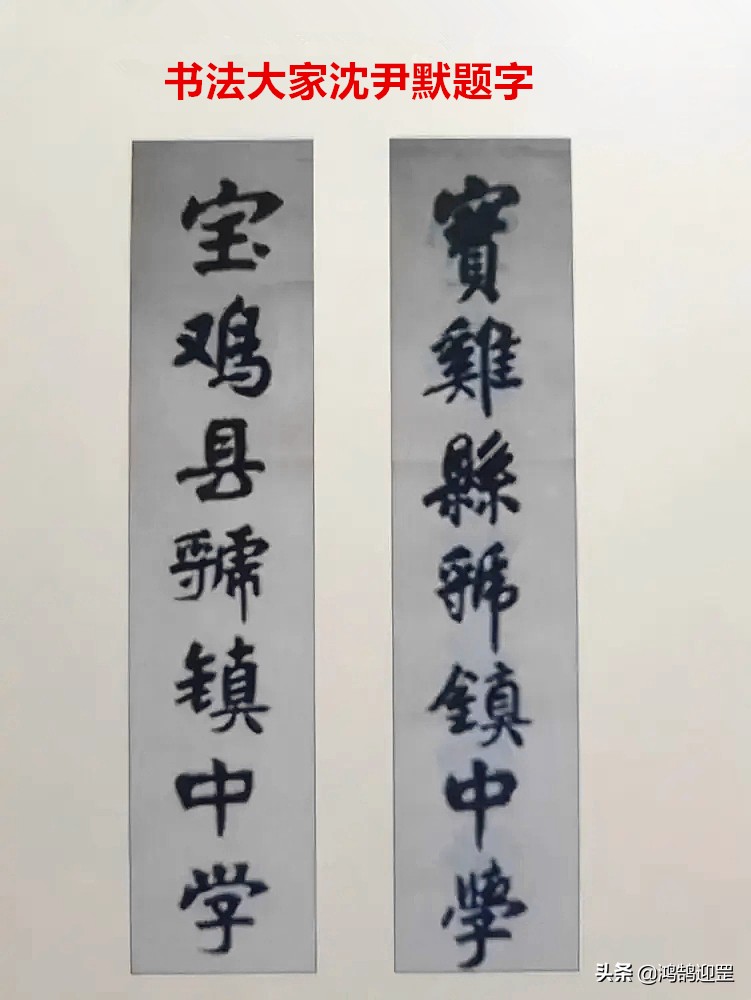 书法大家沈尹默题字
宝鸡县虢镇中学
寶雞縣虢鎮中學
头条 @鸿鹄迎罡